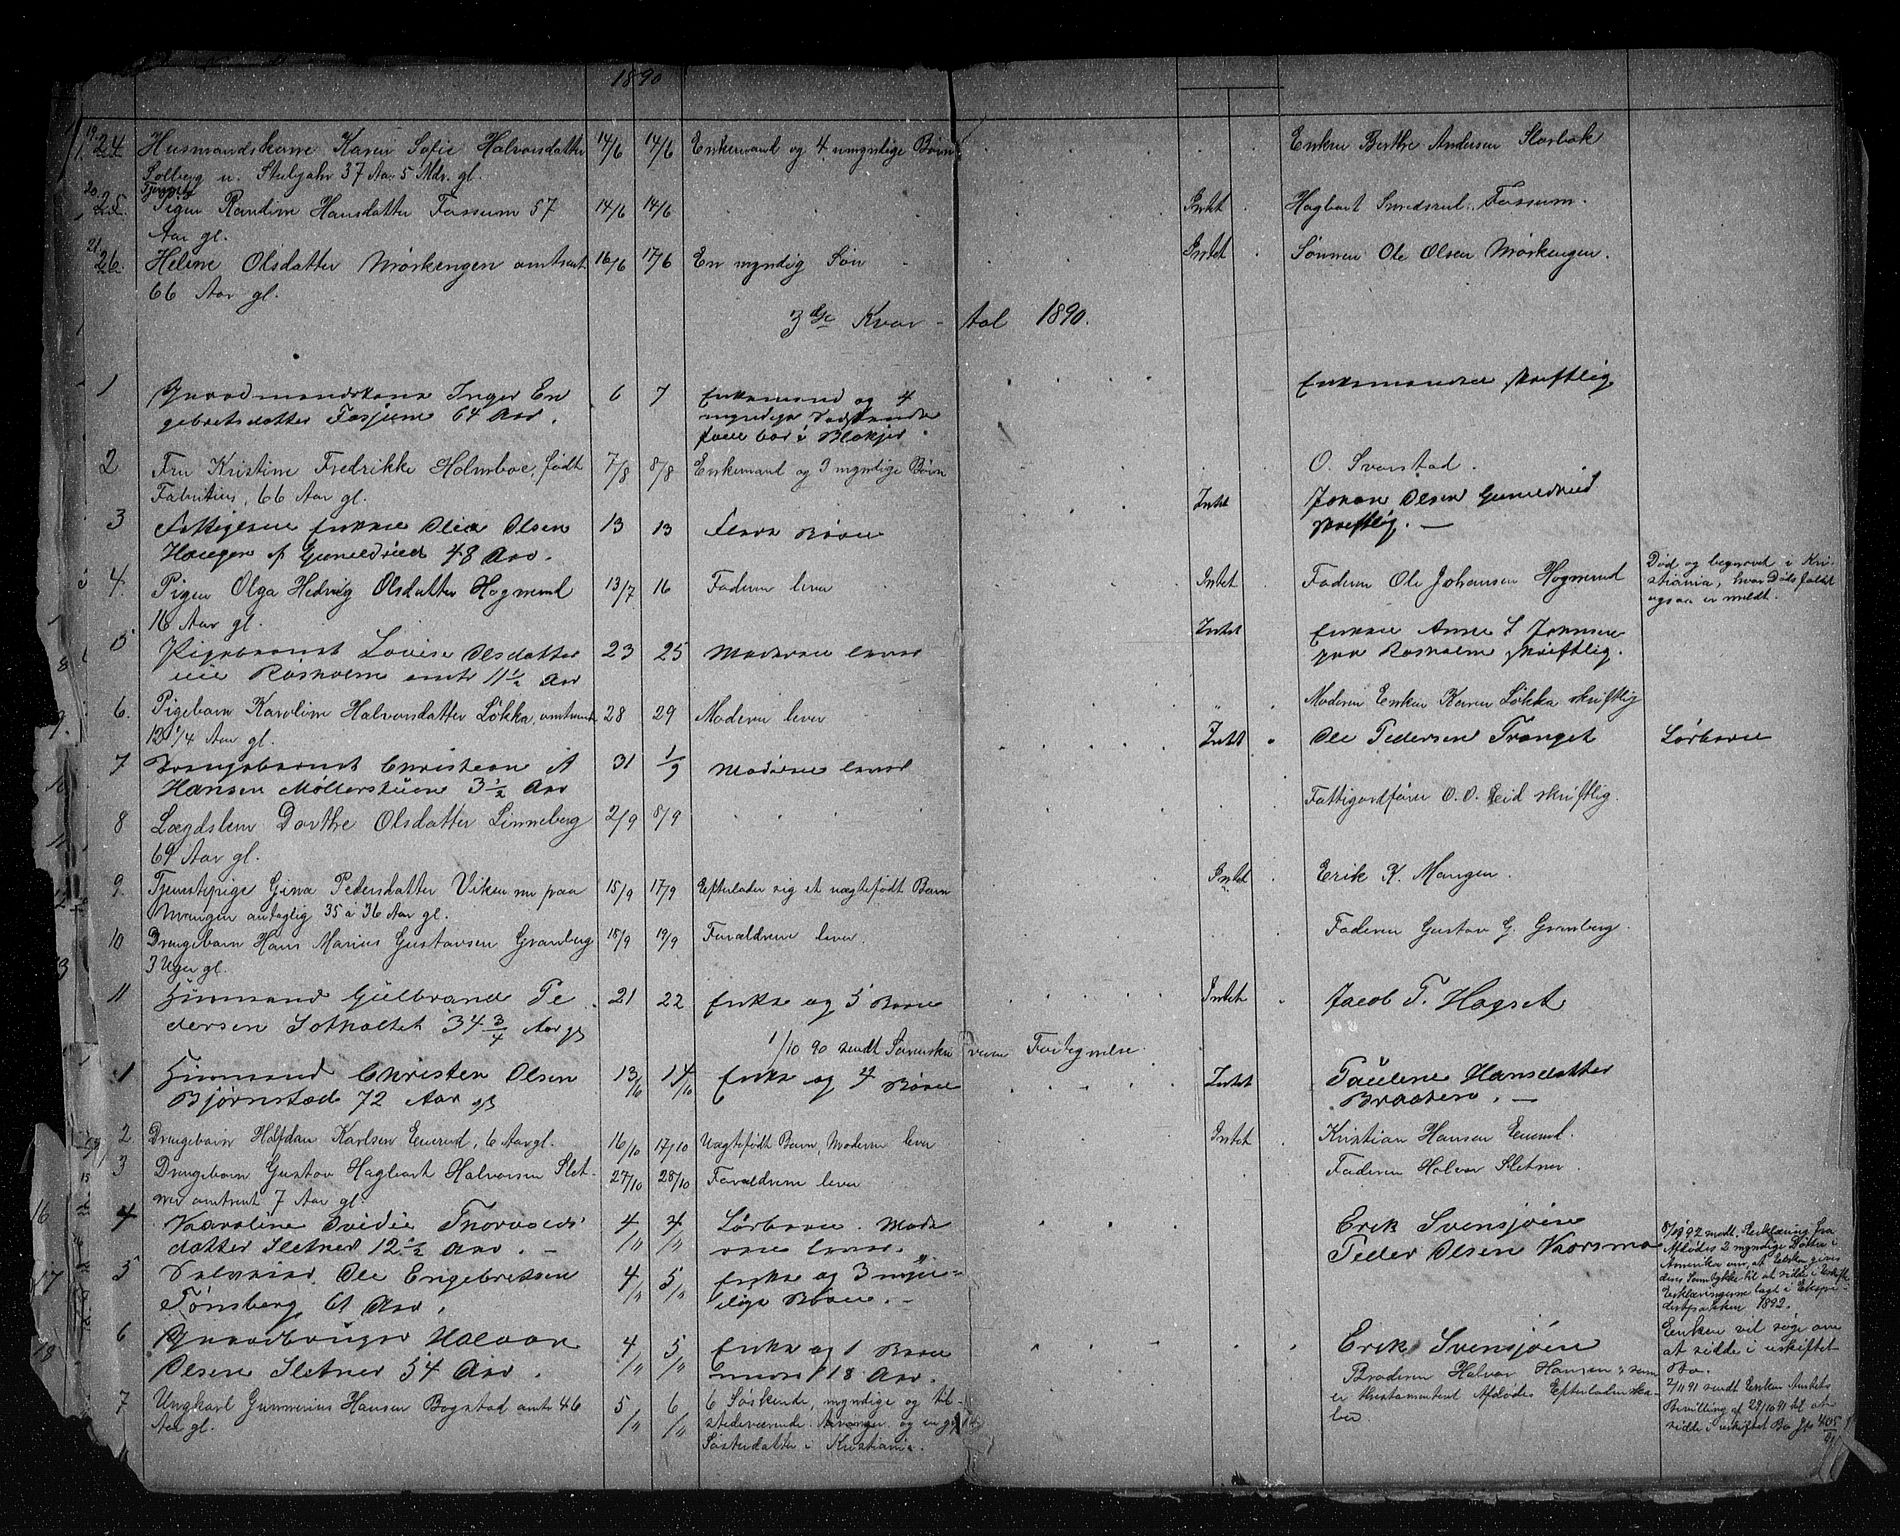 1890
19. 24. Husmandskone Karen Sofie Halvorsdatter 14/6 14/6 Enkemand og 4 umyndige Børn Enken Berthe Andersen Storbæk
Solberg u. 37 Aar 5 Mdr. gl.
20. 25. Pigen Randine Hansdatter Fossum 57 14/6 14/6 Intet Hagbart Fossum.
Aar gl.
21. 26. Heline Olsdatter Mørkengen omtrent 16/6 17/6 En myndig Søn Intet Sønnen Ole Olsen Mørkengen.
66 Aar gl.
3die Kvartal 1890.
1 Gaardmandskone Inger En 6 7 Enkemand og 4 Enkemanden skriftlig
gebretsdatter Fosjum 64 Aar.
2 Fru Kristine Fredrikke Holmboe, født 7/8 8/8 Enkemand og 3 myndige Børn O. Svarstad.
Fabritius, 66 Aar gl.
3 Enken Olea Olsen 13 13 Flere Børn Intet Johan Olsen Gunildrud
Haugen af Gunildrud 48 Aar. skriftlig.
4. Pigen Olga Hedvig Olsdatter Hogmerud 13/7 16 Faderen lever Intet Faderen Ole Johansen Hogmerud Død og begravet i Kri-
stiania, hvor Dødsfaldet
ogsaa er meldt.
16 Aar gl.
5 Pigebarnet Lovise Olsdatter 23 25 Moderen lever Intet Enken Anne Johnsen
Rosholm omtr 11 1/2 Aar paa Rosholm skriftlig.
6. Pigebarn Karoline Halvorsdatter Løkka, omtrent 28 29 Moderen lever Moderen Enken Karen Løkka skriftlig
12 1/4 Aar gl.
7 Drengebarnet Christian A 31 1/9 Moderen lever Intet Ole Pedersen Tranget Lørbarn
Hansen Møllerstuen 3 1/2 Aar
8 Lægdslem Dorthe Olsdatter Linneberg 2/9 8/9 Fattigordfører O. O. Eid skriftlig.
69 Aar gl.
9. Tjenestepige Gina Pedersdatter Viken nu paa 15/9 17/9 Efterlader sig et uægtefødt Barn Intet Erik K. Mangen.
Mangen antaglig 35 à 36 Aar gl.
10 Drengebarn Hans Marius Gustavsen Granberg 18/9 19/9 Forældrene lever. Faderen Gustav G. Granberg.
3 Uger gl.
11 Husmand Gulbrand Pe 21 22 Enke og 5 Børn Intet Jacob T. Hogset
dersen 34 3/4 Aar gl
1/10 90 sendt Fortegnelse.
1 Husmand Christen Olsen 13/10 14/10 Enke og 4 Børn Intet Pauline Hansdatter
Bjørnstad 72 Aar gl Braaten.
2 Drengebarn Halfdan Karlsen Enerud, 6 Aar gl. 16/10 17/10 Uægtefødt Barn, Moderen lever Intet Kristian Hansen Enerud.
3 Drengebarn Gustav Hagbart Halvorsen Slet- 27/10 28/10 Forældrene lever Faderen Halvor Sletner.
ner omtrent 7 Aar gl.
4 Karoline Thorvalds 4/11 4/11 Lørbarn. Mode Erik Svensjøen
datter Sletner 12 1/2 Aar. ren lever.
5 Ole Engebretsen 4/11 5/11 Enke og 3 myn- Peder Olsen
Tønsberg 61 Aar. dige Børn.
Afdødes 2 myndige Døtre i
Amerika om, at Enken gives
deres Samtykke til at sidde i Uskifte
Erklæringerne lagt i Ekspe-
ditpakken 1892.
6 Gaardbruger Halvor 4/11 5/11 Enke og 1 Barn Erik Svensjøen Enken vil søge om
Olsen Sletner 54 Aar. under 18 Aar. at sidde i uskiftet
Bo.
7 Ungkarl Gunnerius Hansen Bogstad omtr 46 5/11 6/11 6 Søskende, myndige og til- Broderen Halvor Hansen, som
Aar gl. stedeværende Arvinger og en
Søsterdatter i Kristiania. er testamenteret Afdødes Efterladenska-
ber
2/11 91 sendt Enken Amtets
Bevilling af 29/10 91 til at
sidde i uskiftet Bo